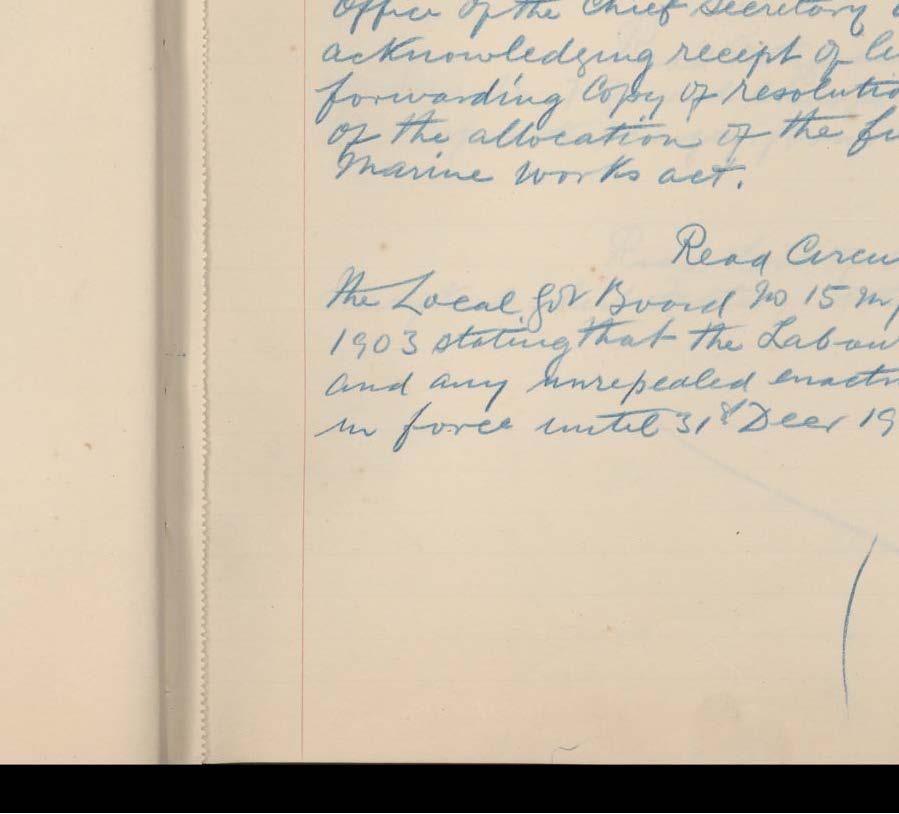 Office of the Chief Secretary
acknowledging receipt of
forwarding Copy of resolutio
of the allocation of the fu
Marine Works act.
Read Circu
the Local Gov Board No 15 M
1903 stating that the Labou
and any unrepealed enactm
in force until 31st Decr 19